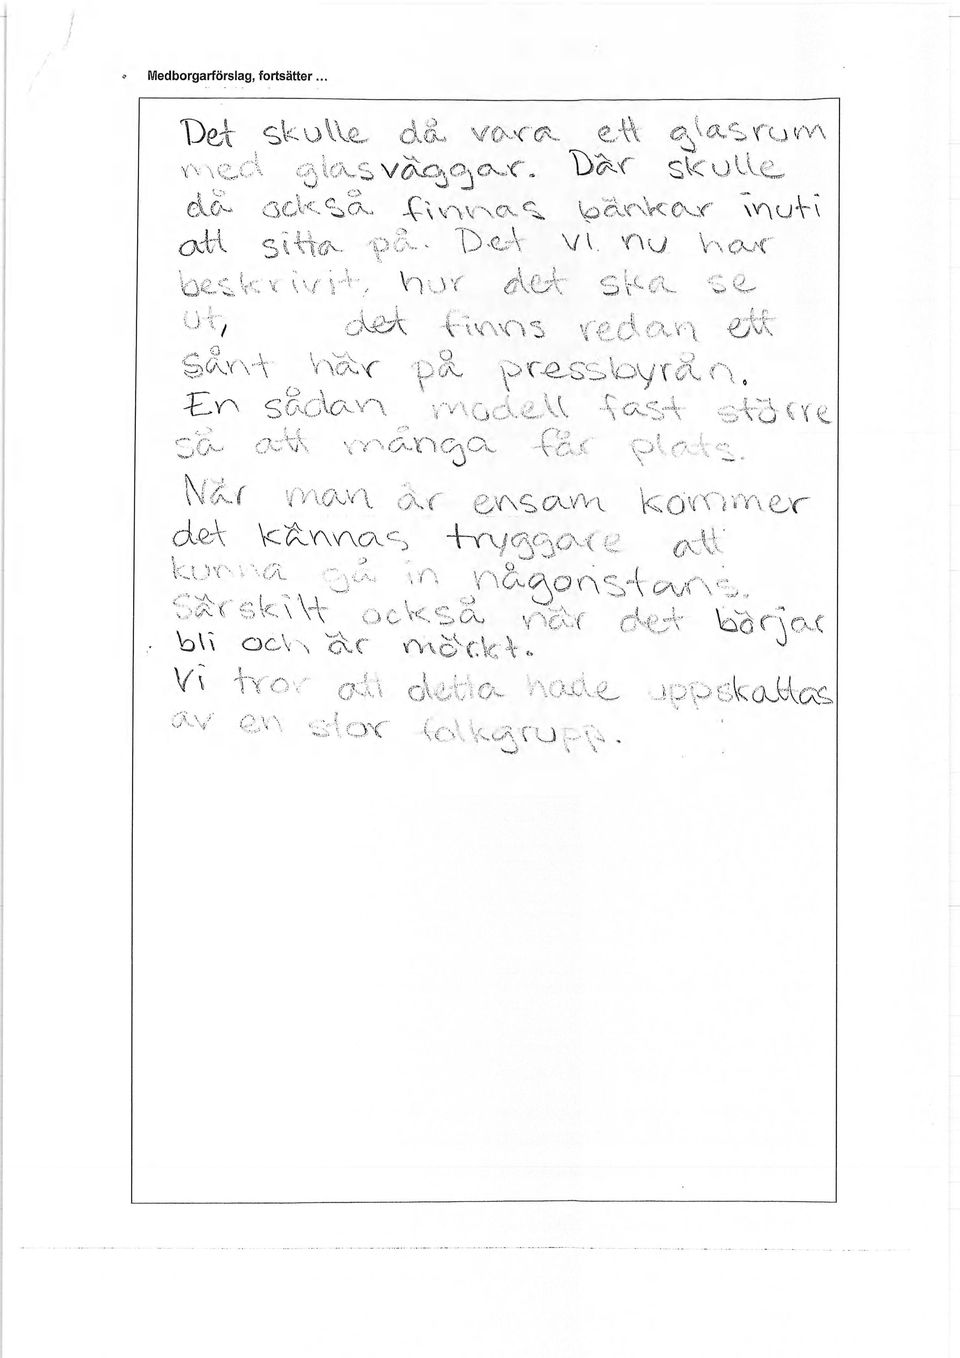 Medborgarförslag, fortsätter ...
Det skulle då vara ett glasrum
med glasväggar. Där skulle
då också finnas bänkar inuti
att sitta på. Det vi nu har
beskrivit, hur det ska se
ut, det finns redan ett
sånt här på pressbyrån.
En sådan modell fast större
så att många får plats.
När man är ensam kommer
det kännas tryggare att
kunna gå in någonstans.
Särskilt också när det börjar
bli och är mörkt.
Vi tror att detta hade uppskattas
av en stor folkgrupp.